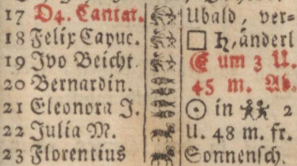 17 D4. Cantat. Ubald, ver-
18 Felix Capuc. □ ♄, änderl
19 Jvo Beicht. ☾ um 3 U.
20 Bernardin. 45 m. Ab.
21 Eleonora J. ☉ in ♊ 2
22 Julia M. U. 48 m. fr.
23 Florentius Sonnensch.